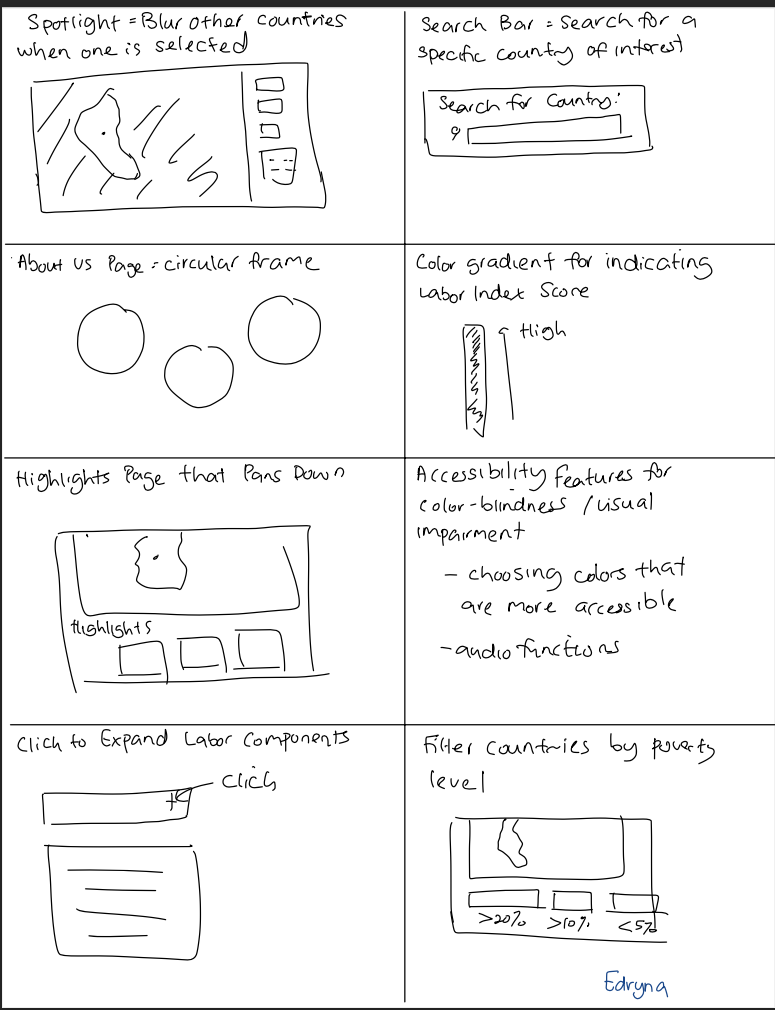 Spotlight = Blur other countries
when one is selected
Search Bar = search for a
specific country of interest
Search for Country:
About us Page = circular frame
Color gradient for indicating
Labor Index Score
High
Highlights Page that Pans Down
Highlights
Accessibility features for
color-blindness / visual
impairment
- choosing colors that
are more accessible
- audio functions
Click to Expand Labor Components
click
Filter countries by poverty
level
>20% >10% <5%
Edryna